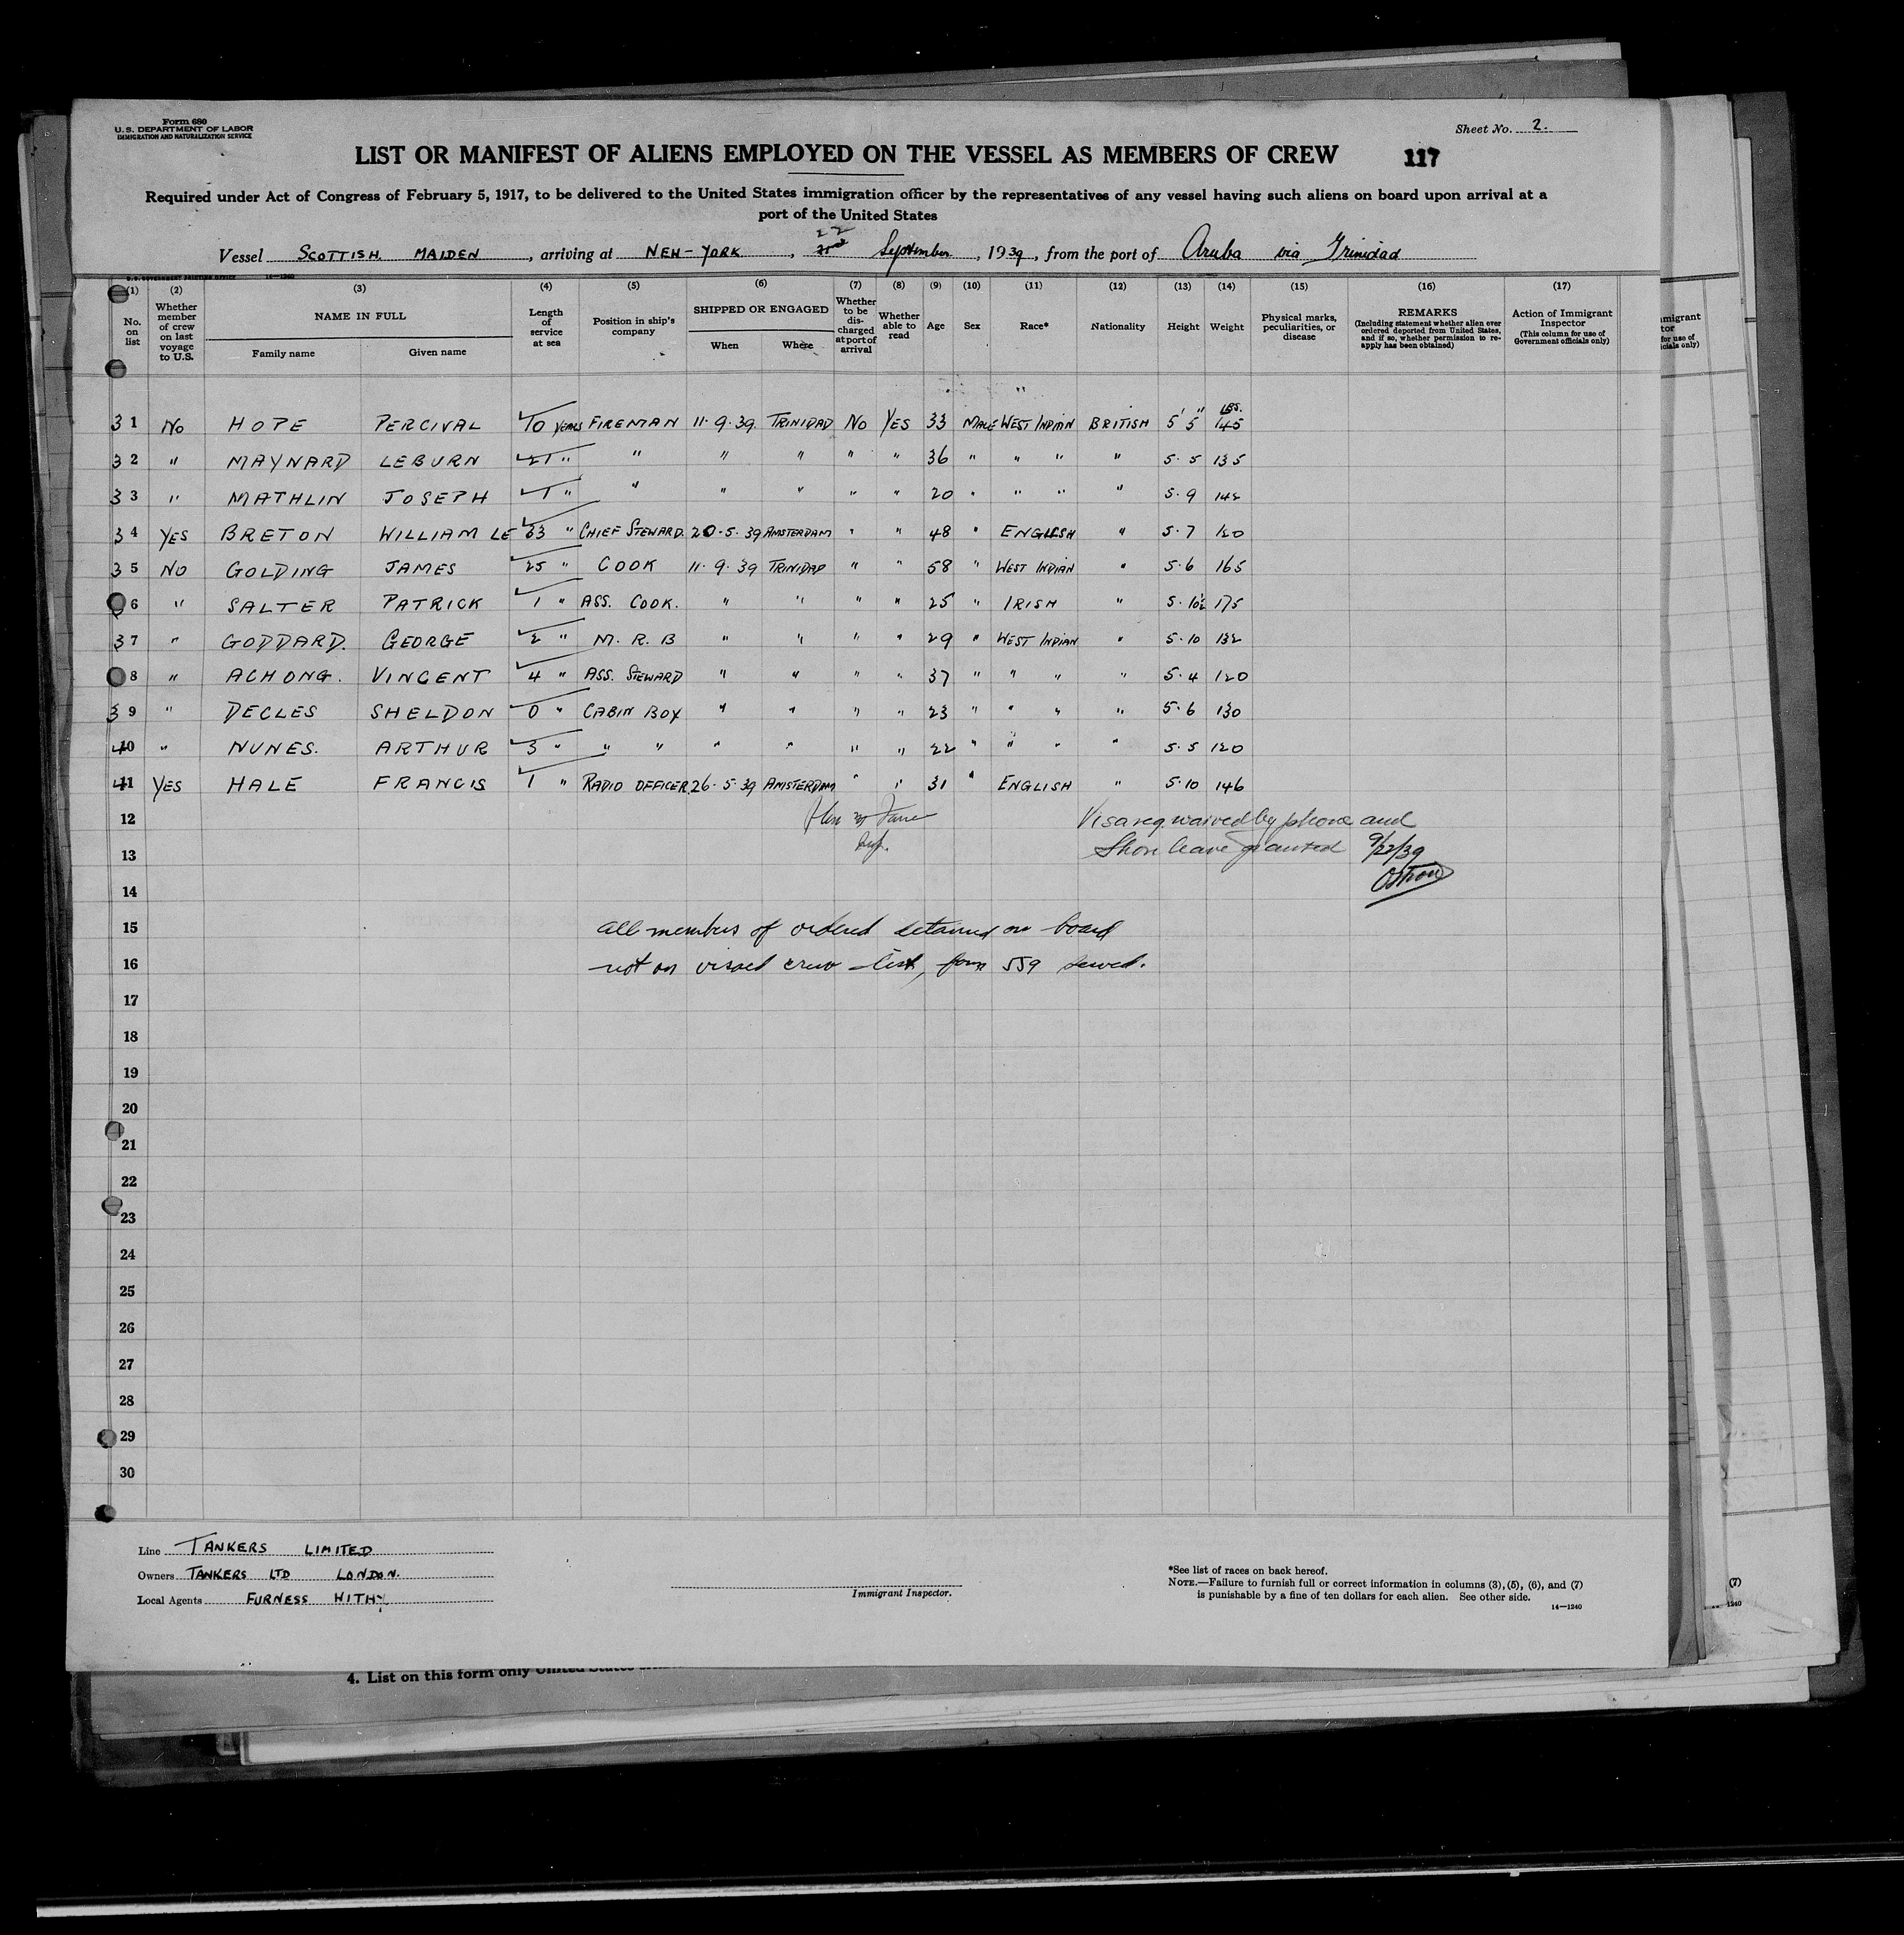 Form 680
U. S. DEPARTMENT OF LABOR
IMMIGRATION AND NATURALIZATION SERVICE
Sheet No. 2.
LIST OR MANIFEST OF ALIENS EMPLOYED ON THE VESSEL AS MEMBERS OF CREW 117
Required under Act of Congress of February 5, 1917, to be delivered to the United States immigration officer by the representatives of any vessel having such aliens on board upon arrival at a
port of the United States
22
Vessel SCOTTISH MAIDEN, arriving at NEW-YORK, September, 1939, from the port of Aruba via Trinidad
U. S. GOVERNMENT PRINTING OFFICE 14—1240
(1) No. on list
(2) Whether member of crew on last voyage to U.S.
(3) NAME IN FULL
Family name Given name
(4) Length of service at sea
(5) Position in ship's company
(6) SHIPPED OR ENGAGED
When Where
(7) Whether to be discharged at port of arrival
(8) Whether able to read
(9) Age
(10) Sex
(11) Race*
(12) Nationality
(13) Height
(14) Weight
(15) Physical marks, peculiarities, or disease
(16) REMARKS
(Including statement whether alien ever ordered deported from United States, and if so, whether permission to reapply has been obtained)
(17) Action of Immigrant Inspector
(This column for use of Government officials only)
31 NO HOPE PERCIVAL 10 YEARS FIREMAN 11·9·39 TRINIDAD NO YES 33 MALE WEST INDIAN BRITISH 5' 5" LBS. 145
32 " MAYNARD LEBURN 21 " " " " " " 36 " " " " 5·5 135
33 " MATHLIN JOSEPH 1 " " " " " " 20 " " " " 5·9 142
34 YES BRETON WILLIAM LE 33 " CHIEF STEWARD. 20·5·39 AMSTERDAM " " 48 " ENGLISH " 5·7 120
35 NO GOLDING JAMES 25 " COOK 11·9·39 TRINIDAD " " 58 " WEST INDIAN " 5·6 165
6 " SALTER PATRICK 1 " ASS. COOK. " " " " 25 " IRISH " 5·10½ 175
37 " GODDARD. GEORGE 2 " M. R. B " " " " 29 " WEST INDIAN " 5·10 132
8 " ACHONG. VINCENT 4 " ASS. STEWARD " " " " 37 " " " " 5·4 120
39 " DECLES SHELDON 0 " CABIN BOY " " " " 23 " " " " 5·6 130
40 " NUNES. ARTHUR 3 " " " " " " " 22 " " " " 5·5 120
41 YES HALE FRANCIS 1 " RADIO OFFICER. 26·5·39 AMSTERDAM " " 31 " ENGLISH " 5·10 146
12 Visa req. waived by phone and
13 Shore leave granted 9/22/39
14
15 all members of ordered detained on board
16 not on visaed crew list, form 559 served.
17
18
19
20
21
22
23
24
25
26
27
28
29
30
Line TANKERS LIMITED
Owners TANKERS LTD LONDON.
Local Agents FURNESS WITHY
Immigrant Inspector.
*See list of races on back hereof.
NOTE.—Failure to furnish full or correct information in columns (3), (5), (6), and (7)
is punishable by a fine of ten dollars for each alien. See other side.
14—1240
4. List on this form only United States